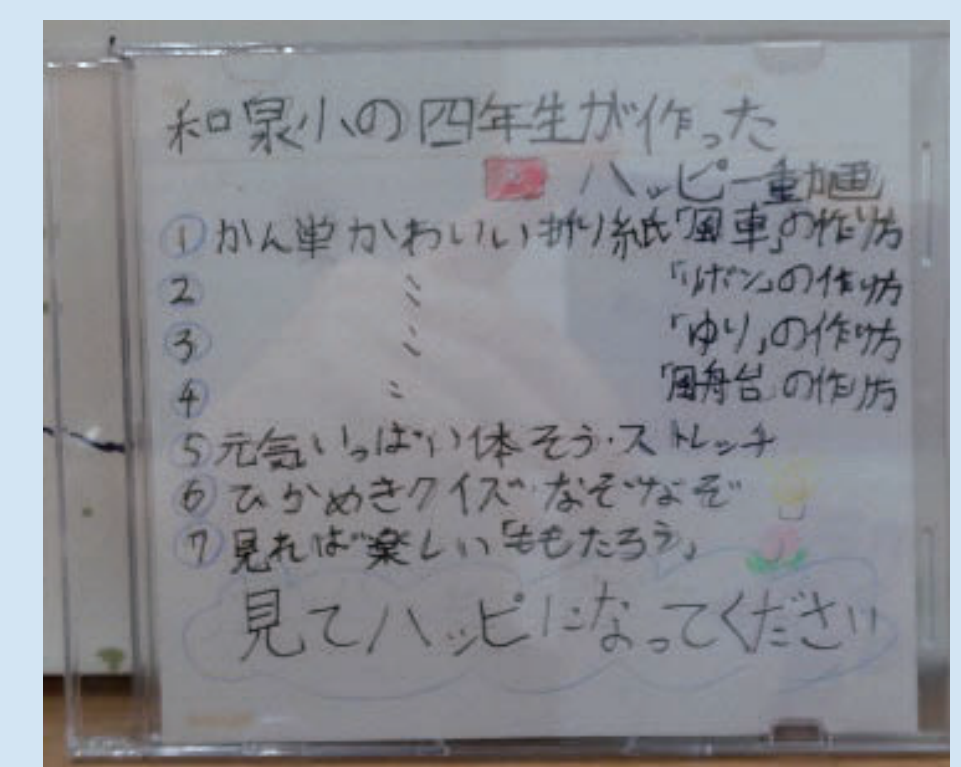 和泉小の四年生が作った
ハッピー動画
① かん単かわいい折り紙「風車」の作り方
② 〃 「リボン」の作り方
③ 〃 「ゆり」の作り方
④ 〃 「風船台」の作り方
⑤ 元気いっぱい体そう・ストレッチ
⑥ ひらめきクイズ・なぞなぞ
⑦ 見れば楽しい「ももたろう」
見てハッピになってください